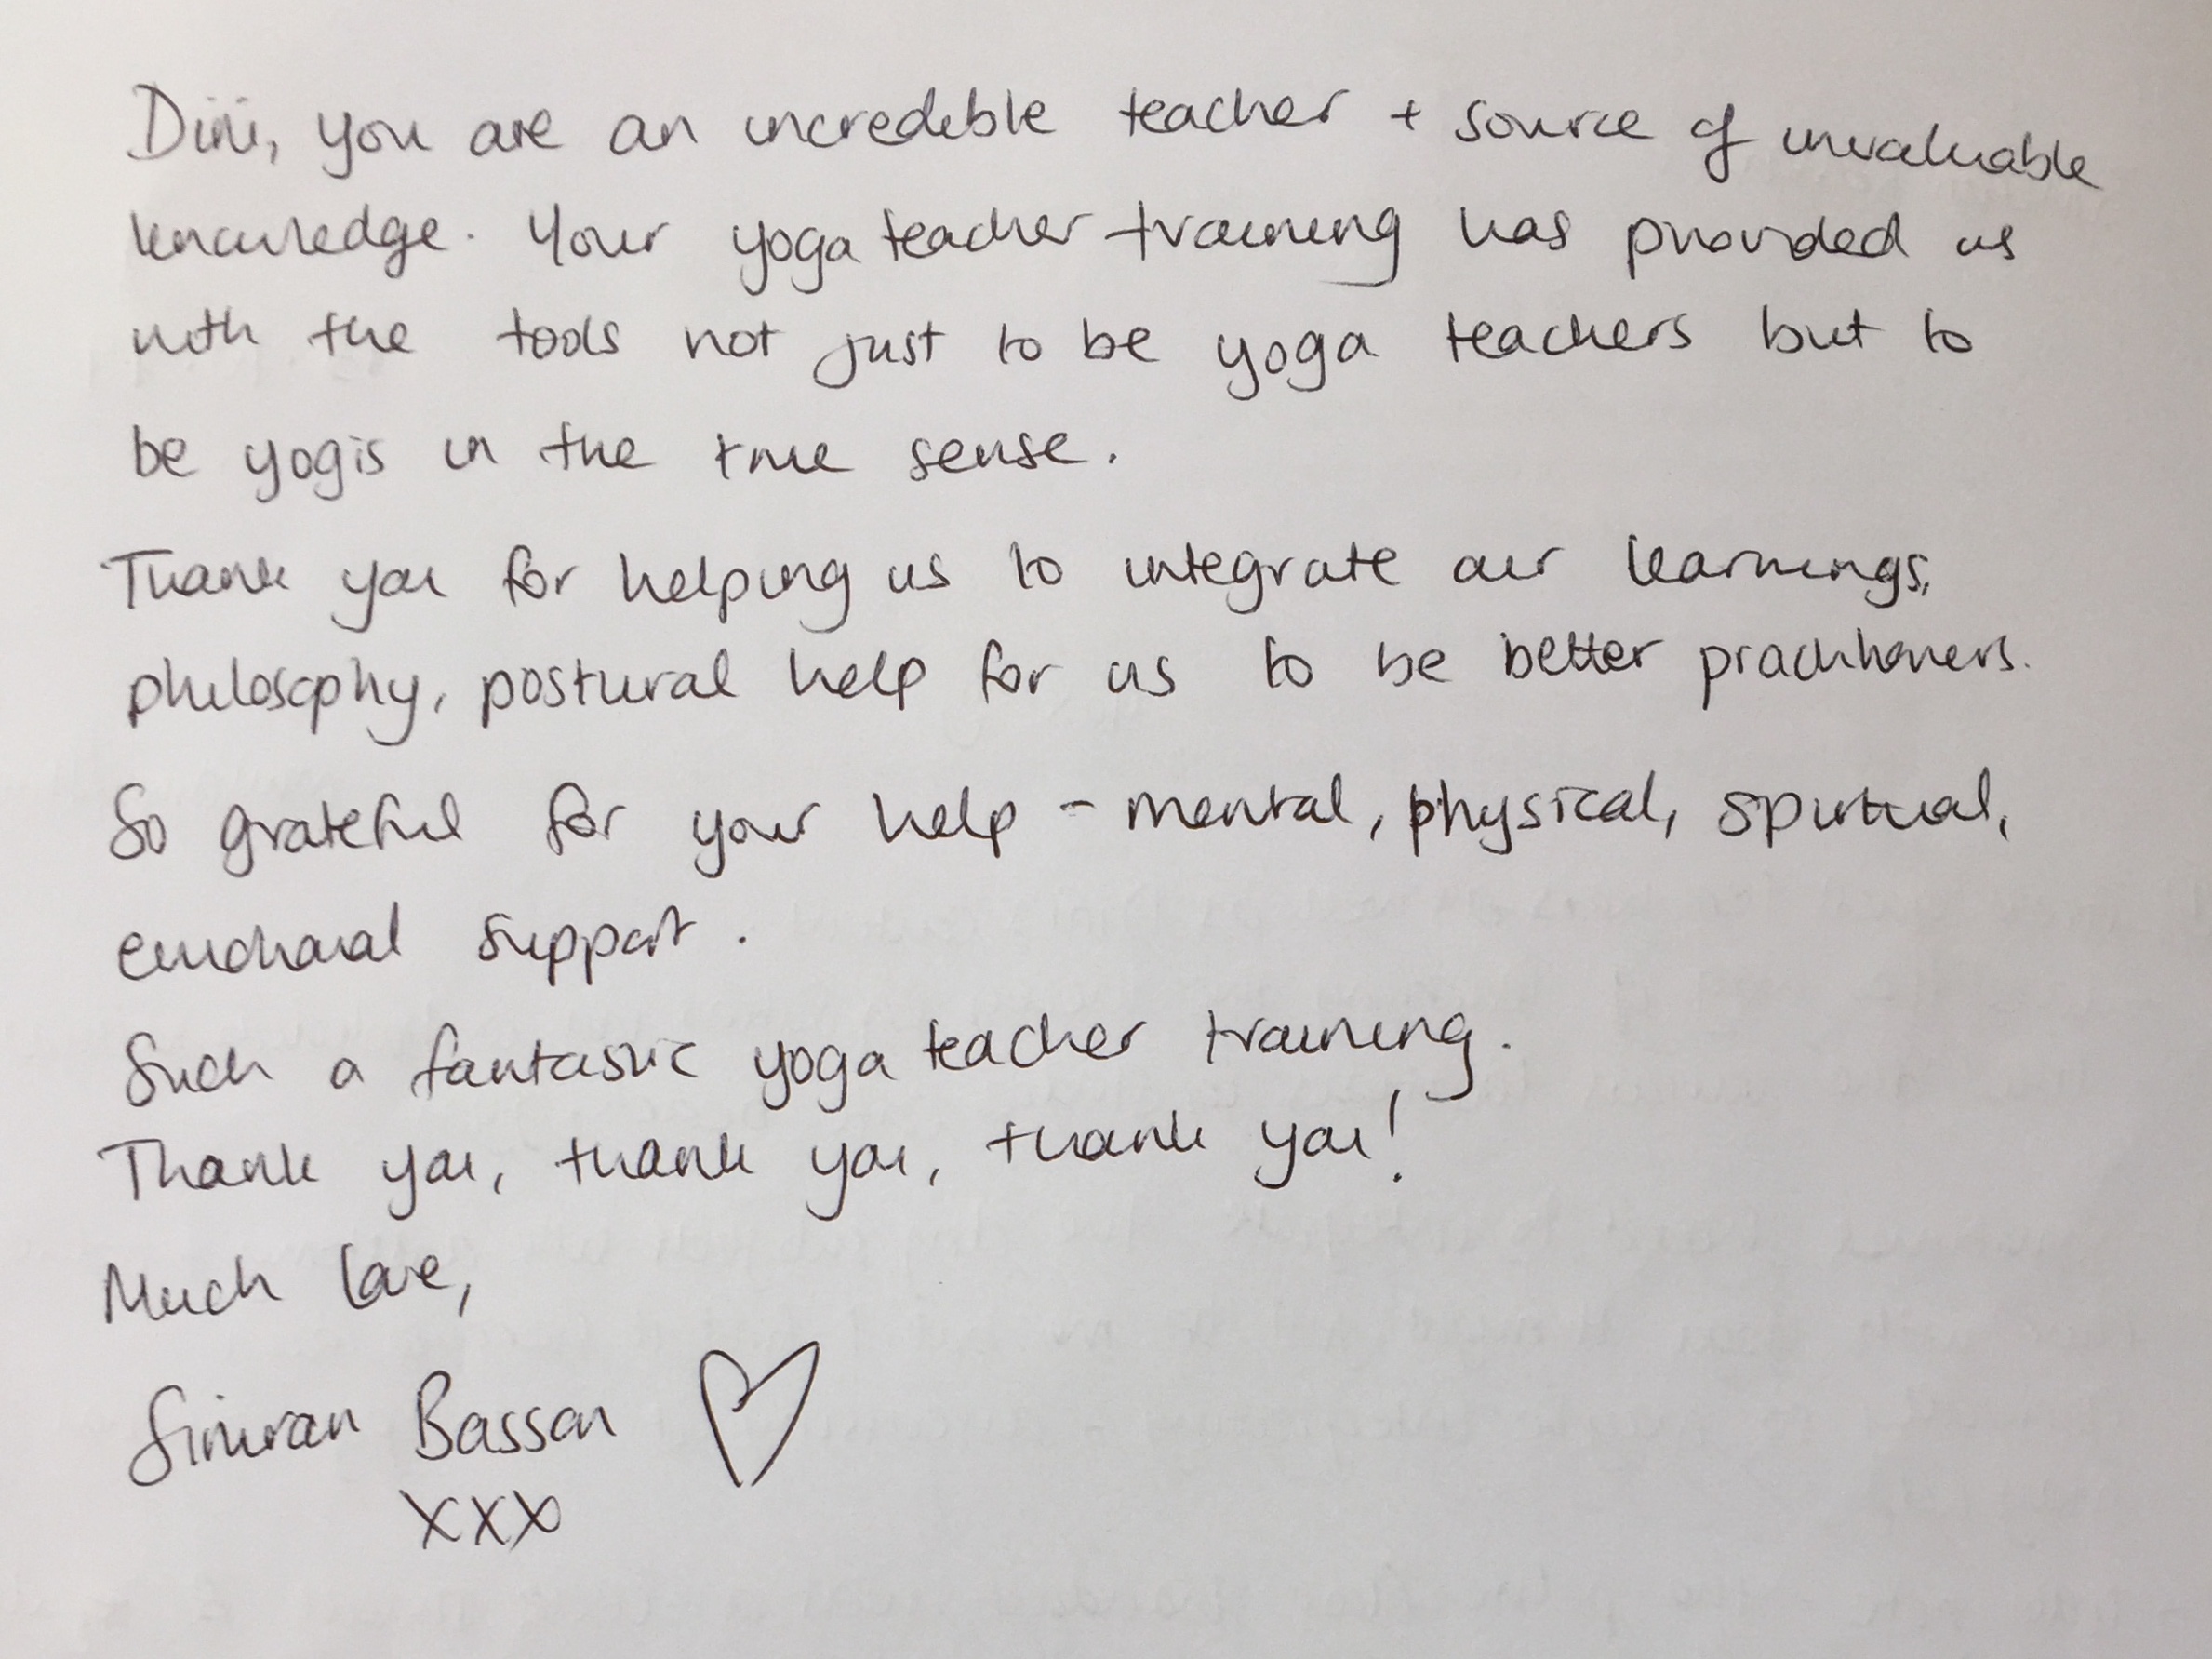 Dini, you are an incredible teacher + source of invaluable
knowledge. Your yoga teacher training has provided us
with the tools not just to be yoga teachers but to
be yogis in the true sense.
Thank you for helping us to integrate our learnings,
philosophy, postural help for us to be better practitioners.
So grateful for your help - mental, physical, spiritual,
emotional support.
Such a fantastic yoga teacher training.
Thank you, thank you, thank you!
Much love,
Simran Basson
xxx